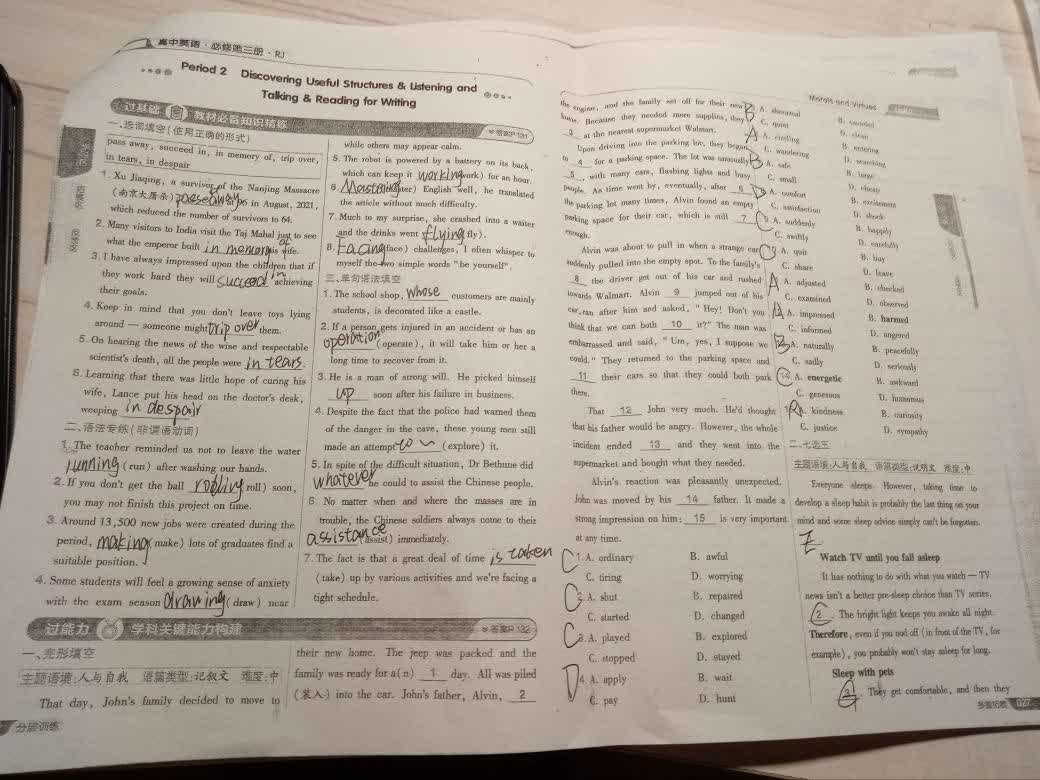 高中英语·必修第三册·RJ
Period 2 Discovering Useful Structures & Listening and
Talking & Reading for Writing
过基础 教材必备知识精练
答案P 131
一、选词填空(使用正确的形式)
pass away, succeed in, in memory of, trip over,
in tears, in despair
1. Xu Jiaqing, a survivor of the Nanjing Massacre
(南京大屠杀) passed away at 96 in August, 2021,
which reduced the number of survivors to 64.
2. Many visitors to India visit the Taj Mahal just to see
what the emperor built in memory of his wife.
3. I have always impressed upon the children that if
they work hard they will succeed in achieving
their goals.
4. Keep in mind that you don't leave toys lying
around — someone might trip over them.
5. On hearing the news of the wise and respectable
scientist's death, all the people were in tears.
6. Learning that there was little hope of curing his
wife, Lance put his head on the doctor's desk,
weeping in despair
二、语法专练(非谓语动词)
1. The teacher reminded us not to leave the water
running (run) after washing our hands.
2. If you don't get the ball rolling roll) soon,
you may not finish this project on time.
3. Around 13,500 new jobs were created during the
period, making (make) lots of graduates find a
suitable position.
4. Some students will feel a growing sense of anxiety
with the exam season drawing (draw) near
while others may appear calm.
5. The robot is powered by a battery on its back,
which can keep it working work) for an hour.
6. Mastering ter) English well, he translated
the article without much difficulty.
7. Much to my surprise, she crashed into a waiter
and the drinks went flying fly).
8. Facing face) challenges, I often whisper to
myself the two simple words "be yourself".
三、单句语法填空
1. The school shop, whose customers are mainly
students, is decorated like a castle.
2. If a person gets injured in an accident or has an
operation (operate), it will take him or her a
long time to recover from it.
3. He is a man of strong will. He picked himself
up soon after his failure in business.
4. Despite the fact that the police had warned them
of the danger in the cave, these young men still
made an attempt to ~ (explore) it.
5. In spite of the difficult situation, Dr Bethune did
whatever he could to assist the Chinese people.
6. No matter when and where the masses are in
trouble, the Chinese soldiers always come to their
assistance (assist) immediately.
7. The fact is that a great deal of time is taken
(take) up by various activities and we're facing a
tight schedule.
过能力 学科关键能力构建
答案P 132
一、完形填空
主题语境:人与自我 语篇类型:记叙文 难度:中
That day, John's family decided to move to
their new home. The jeep was packed and the
family was ready for a(n) 1 day. All was piled
(装入) into the car. John's father, Alvin, 2
分层训练
Morals and Virtues
the engine, and the family set off for their new
home. Because they needed more supplies, they
3 at the nearest supermarket Walmart.
Upon driving into the parking lot, they began
to 4 for a parking space. The lot was unusually
5 with many cars, flashing lights and busy
people. As time went by, eventually, after 6
the parking lot many times, Alvin found an empty
parking space for their car, which is still 7
enough.
Alvin was about to pull in when a strange car
suddenly pulled into the empty spot. To the family's
8 the driver got out of his car and rushed
towards Walmart. Alvin 9 jumped out of his
car, ran after him and asked, "Hey! Don't you
think that we can both 10 it?" The man was
embarrassed and said, "Um, yes, I suppose we
could." They returned to the parking space and
11 their cars so that they could both park
there.
That 12 John very much. He'd thought
that his father would be angry. However, the whole
incident ended 13 and they went into the
supermarket and bought what they needed.
Alvin's reaction was pleasantly unexpected.
John was moved by his 14 father. It made a
strong impression on him: 15 is very important
at any time.
C 1. A. ordinary B. awful
C. tiring D. worrying
C 2. A. shut B. repaired
C. started D. changed
C 3. A. played B. explored
C. stopped D. stayed
D 4. A. apply B. wait
C. pay D. hunt
B A. abnormal B. crowded
C. quiet D. clean
A A. circling B. entering
C. wandering D. searching
B A. safe B. large
C. small D. cheap
A. comfort B. excitement
C. satisfaction D. shock
A. suddenly B. happily
C. swiftly D. carefully
A. quit B. buy
C. share D. leave
A A. adjusted B. checked
C. examined D. observed
A. impressed B. harmed
C. informed D. angered
B A. naturally B. peacefully
C. sadly D. seriously
14 A. energetic B. awkward
C. generous D. humorous
A. kindness B. curiosity
C. justice D. sympathy
二、七选五
主题语境:人与自我 语篇类型:说明文 难度:中
Everyone sleeps. However, taking time to
develop a sleep habit is probably the last thing on your
mind and some sleep advice simply can't be forgotten.
Watch TV until you fall asleep
It has nothing to do with what you watch — TV
news isn't a better pre-sleep choice than TV series.
2 The bright light keeps you awake all night.
Therefore, even if you nod off (in front of the TV, for
example), you probably won't stay asleep for long.
Sleep with pets
3. They get comfortable, and then they
027